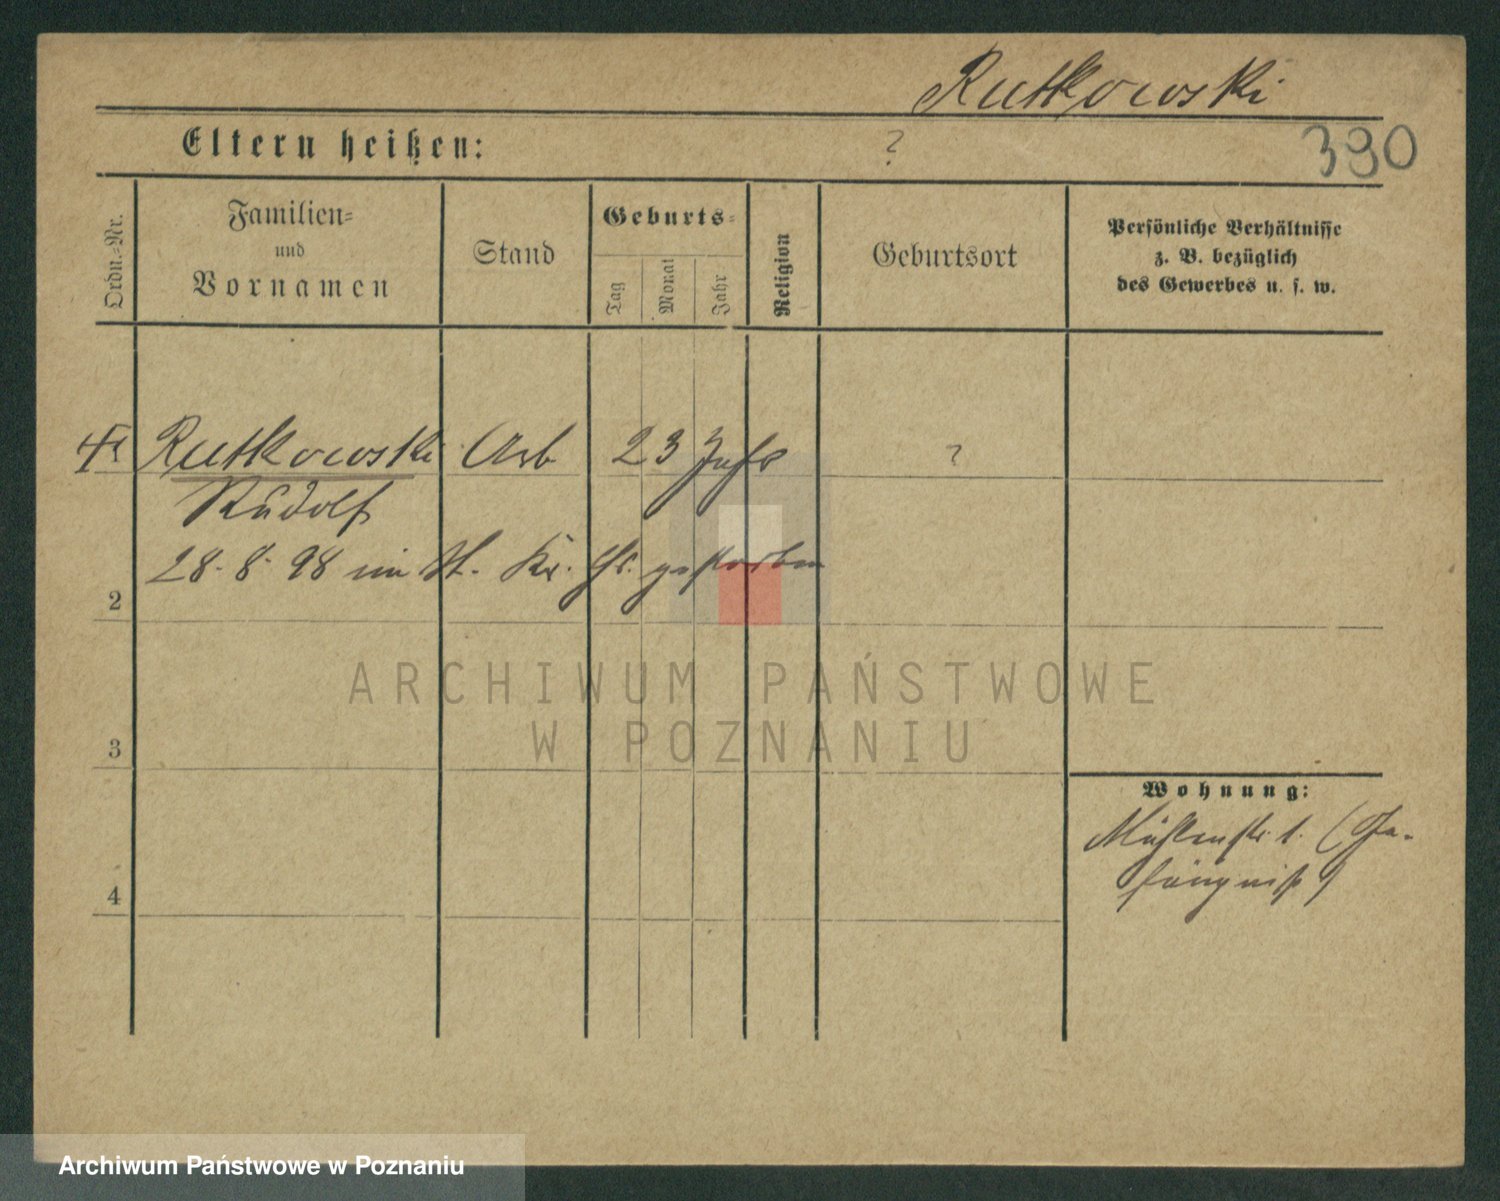 Rutkowski
Eltern heißen: ?
390
Ordn.=Nr.
Familien=
und
Vornamen
Stand
Geburts=
Tag
Monat
Jahr
Religion
Geburtsort
Persönliche Verhältnisse
z. B. bezüglich
des Gewerbes u. s. w.
Rutkowski Arb 23 Jahr ?
Rudolf
28. 8. 98 im St. Kr. Hs. gestorben
2
ARCHIWUM PAŃSTWOWE
W POZNANIU
3
Wohnung:
Mühlenstr. 1. (Ge-
fängniß)
4
Archiwum Państwowe w Poznaniu